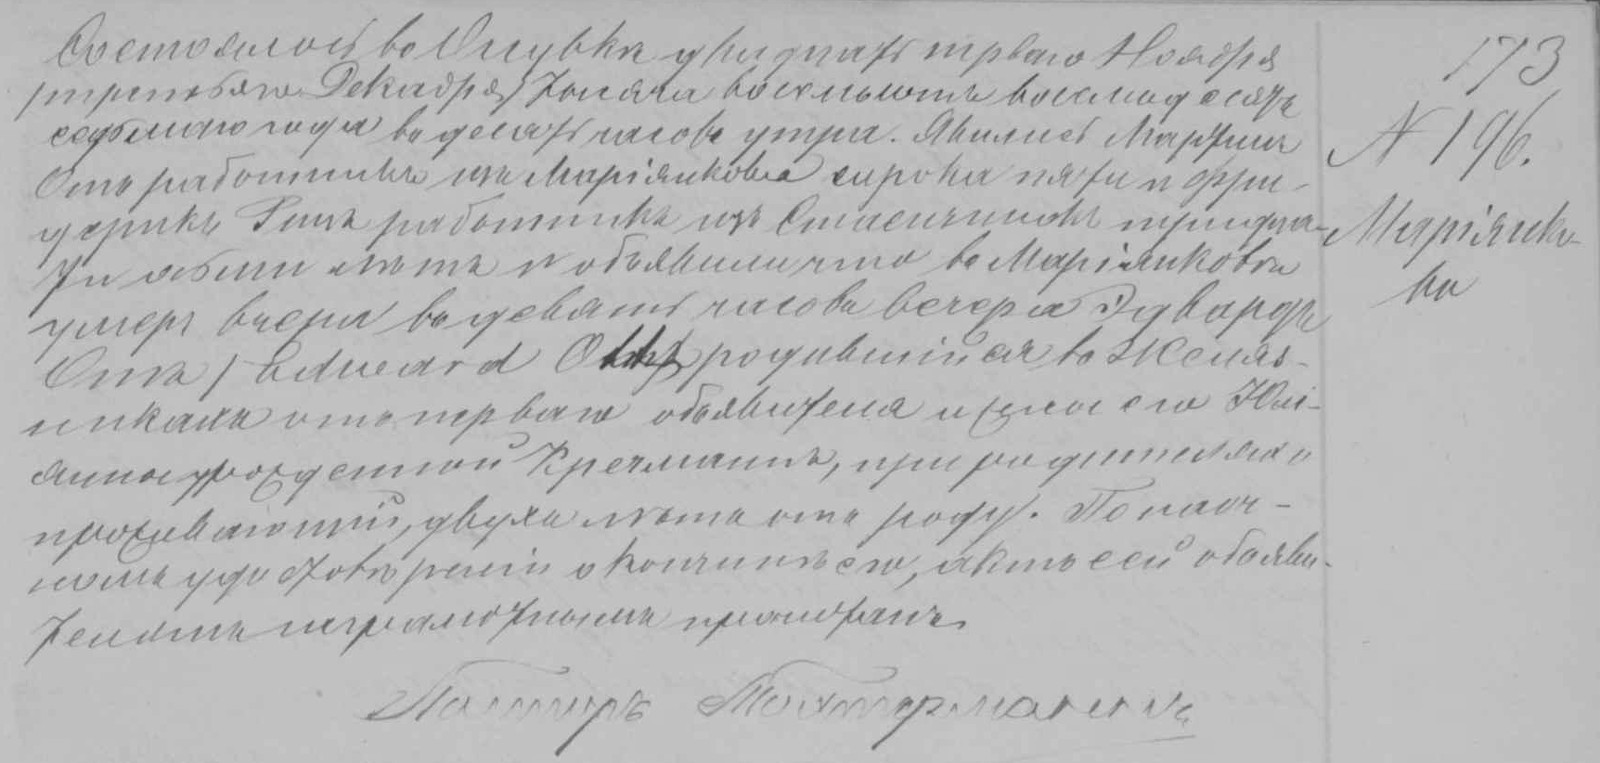 Состоялось въ Слупкѣ двадцать перваго Ноября
/третьяго Декабря/ тысяча восемьсотъ восемьдесятъ
седьмаго года въ десять часовъ утра. Явились Мартинъ
Отъ работникъ изъ Маріянкова сорока пяти и Фри-
дерикъ работникъ изъ тридца-
ти лѣтъ и объявили что въ Маріянковѣ
умеръ вчера въ девять часовъ вечера Эдвардъ
Отъ / Edward Ott/ родившійся въ
отъ перваго объявителя и жены его Юлі-
янны урожденной Кречманнъ, при родителяхъ
проживающій, двухъ лѣтъ отъ роду. По наоч-
номъ удостовѣреніи о кончинѣ его, актъ сей объяви-
телямъ неграмотнымъ прочитанъ.
Пасторъ
173
N 196.
Маріянко-
во